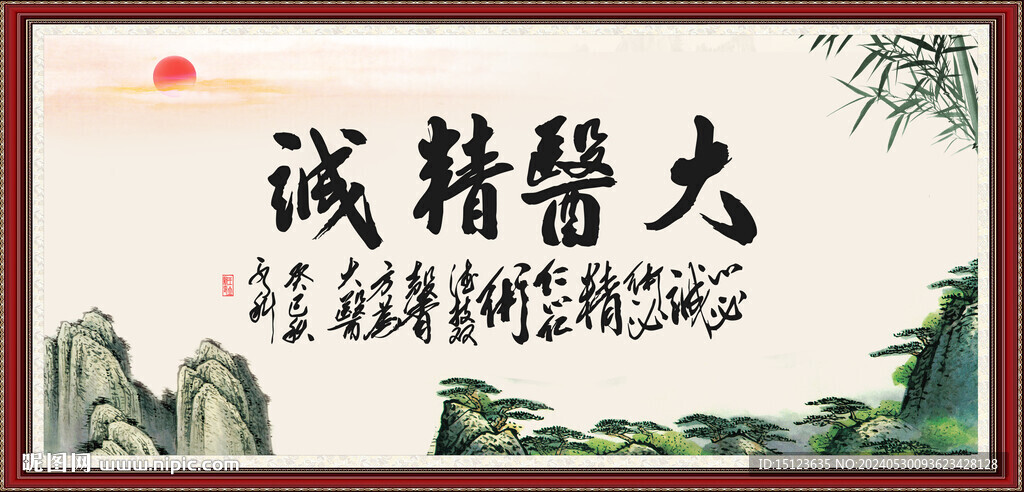 大醫精誠
心必
誠
術必
精
仁心仁
術
德技双
馨
方為
大醫
癸巳秋
昵图网 www.nipic.com
ID:15123635 NO:20240530093623428128